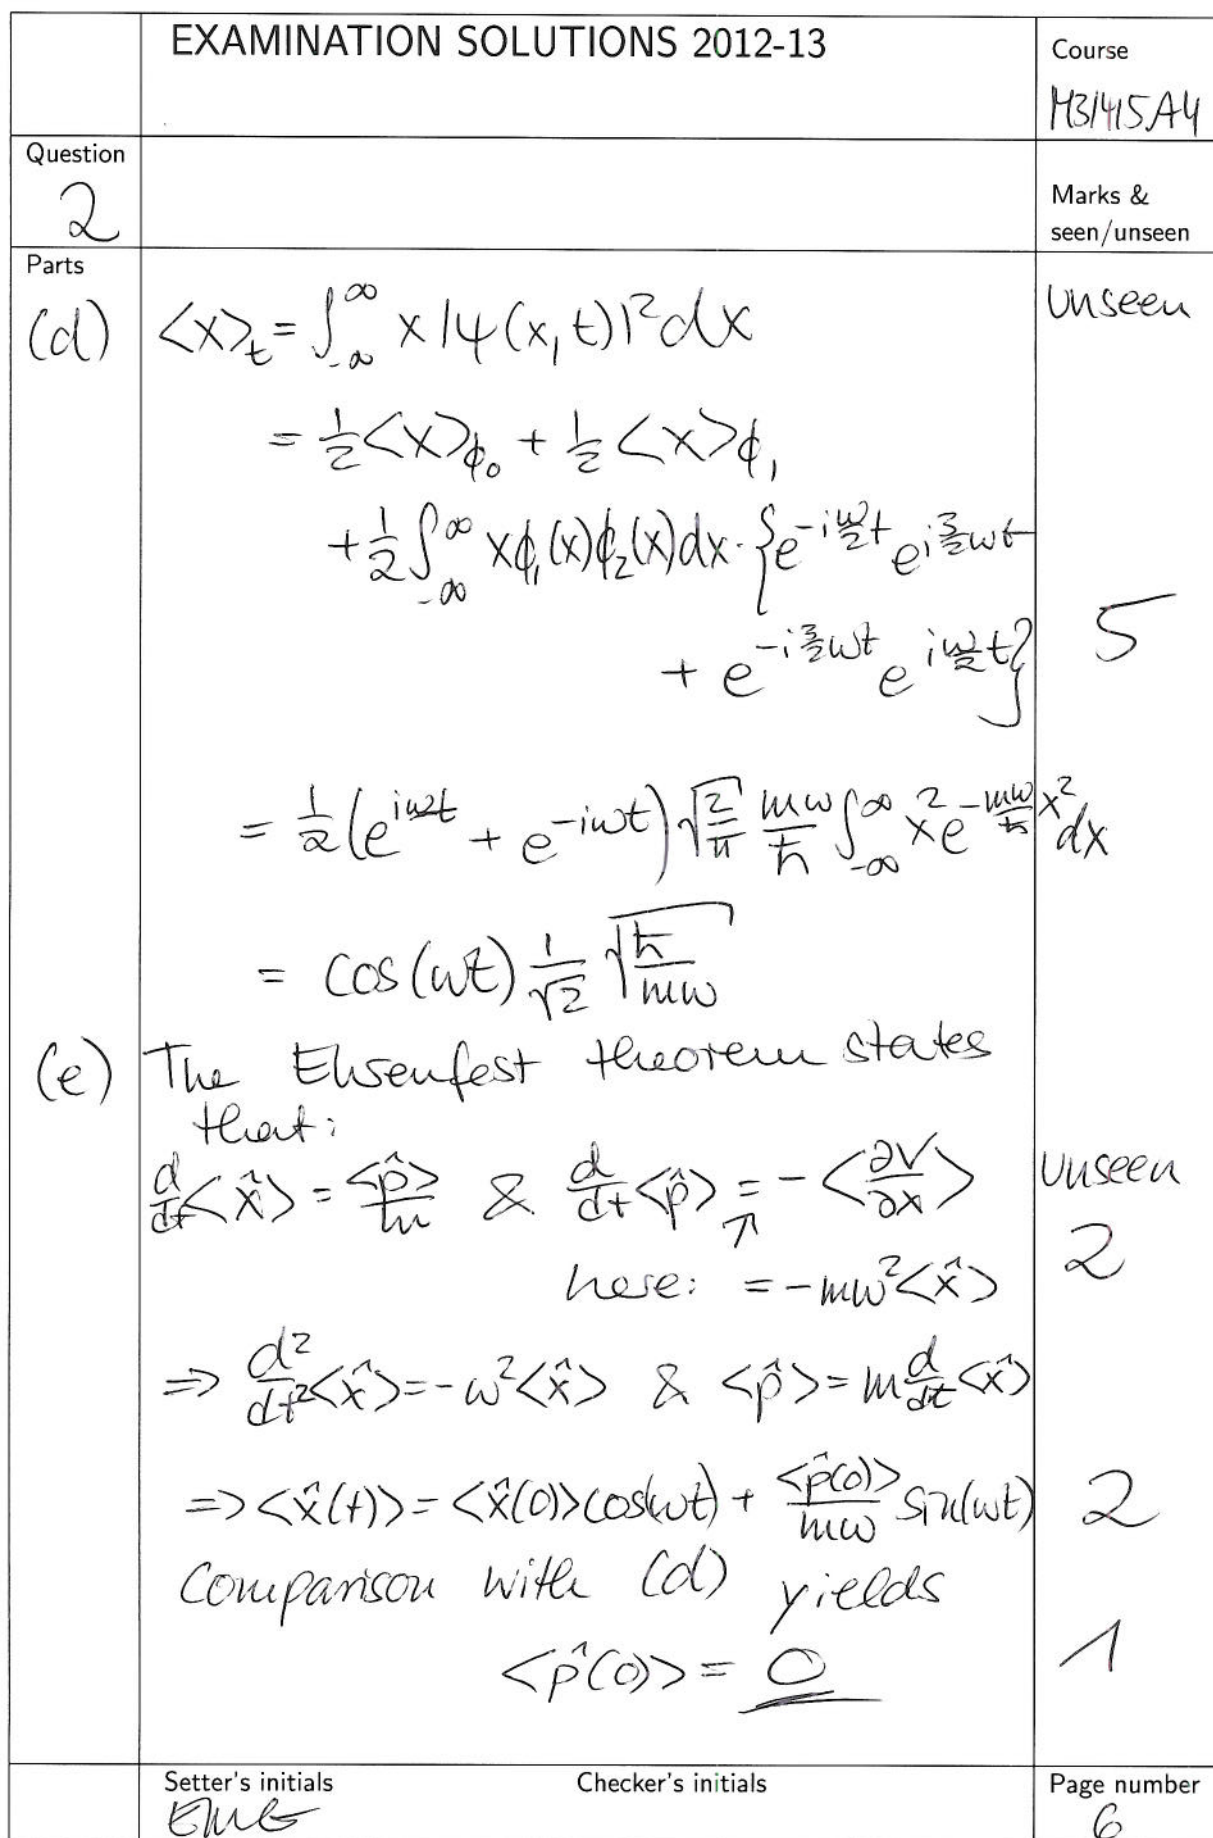 EXAMINATION SOLUTIONS 2012-13
Course
M3/4/5A4
Question
2
Marks &
seen/unseen
Parts
(d) <x>_t = ∫_{-∞}^{∞} x |ψ(x,t)|² dx unseen
= 1/2 <x>_{ϕ₀} + 1/2 <x>_{ϕ₁}
+ 1/2 ∫_{-∞}^{∞} x ϕ₁(x) ϕ₂(x) dx · { e^{-i ω/2 t} e^{i 3/2 ωt}
+ e^{-i 3/2 ωt} e^{i ω/2 t} } 5
= 1/2 (e^{iωt} + e^{-iωt}) √(2/π) mω/ħ ∫_{-∞}^{∞} x² e^{-mω/ħ x²} dx
= cos(ωt) 1/√2 √(ħ/mω)
(e) The Ehrenfest theorem states
that:
d/dt <x̂> = <p̂>/m & d/dt <p̂> = - <∂V/∂x> unseen
↑ 2
here: = -mω² <x̂>
⇒ d²/dt² <x̂> = -ω² <x̂> & <p̂> = m d/dt <x̂>
⇒ <x̂(t)> = <x̂(0)> cos(ωt) + <p̂(0)>/mω sin(ωt) 2
Comparison with (d) yields
<p̂(0)> = 0 1
Setter's initials
EMG
Checker's initials
Page number
6